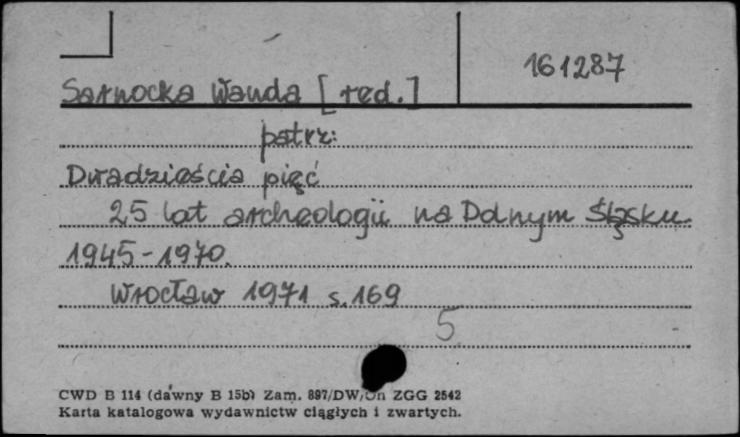 161287
Sarnocka Wanda [red.]
patrz:
Dwadzieścia pięć
25 lat archeologii na Dolnym Śląsku
1945-1970.
Wrocław 1971 s. 169
5
CWD B 114 (dawny B 15b) Zam. 897/DW/Un ZGG 2542
Karta katalogowa wydawnictw ciągłych i zwartych.